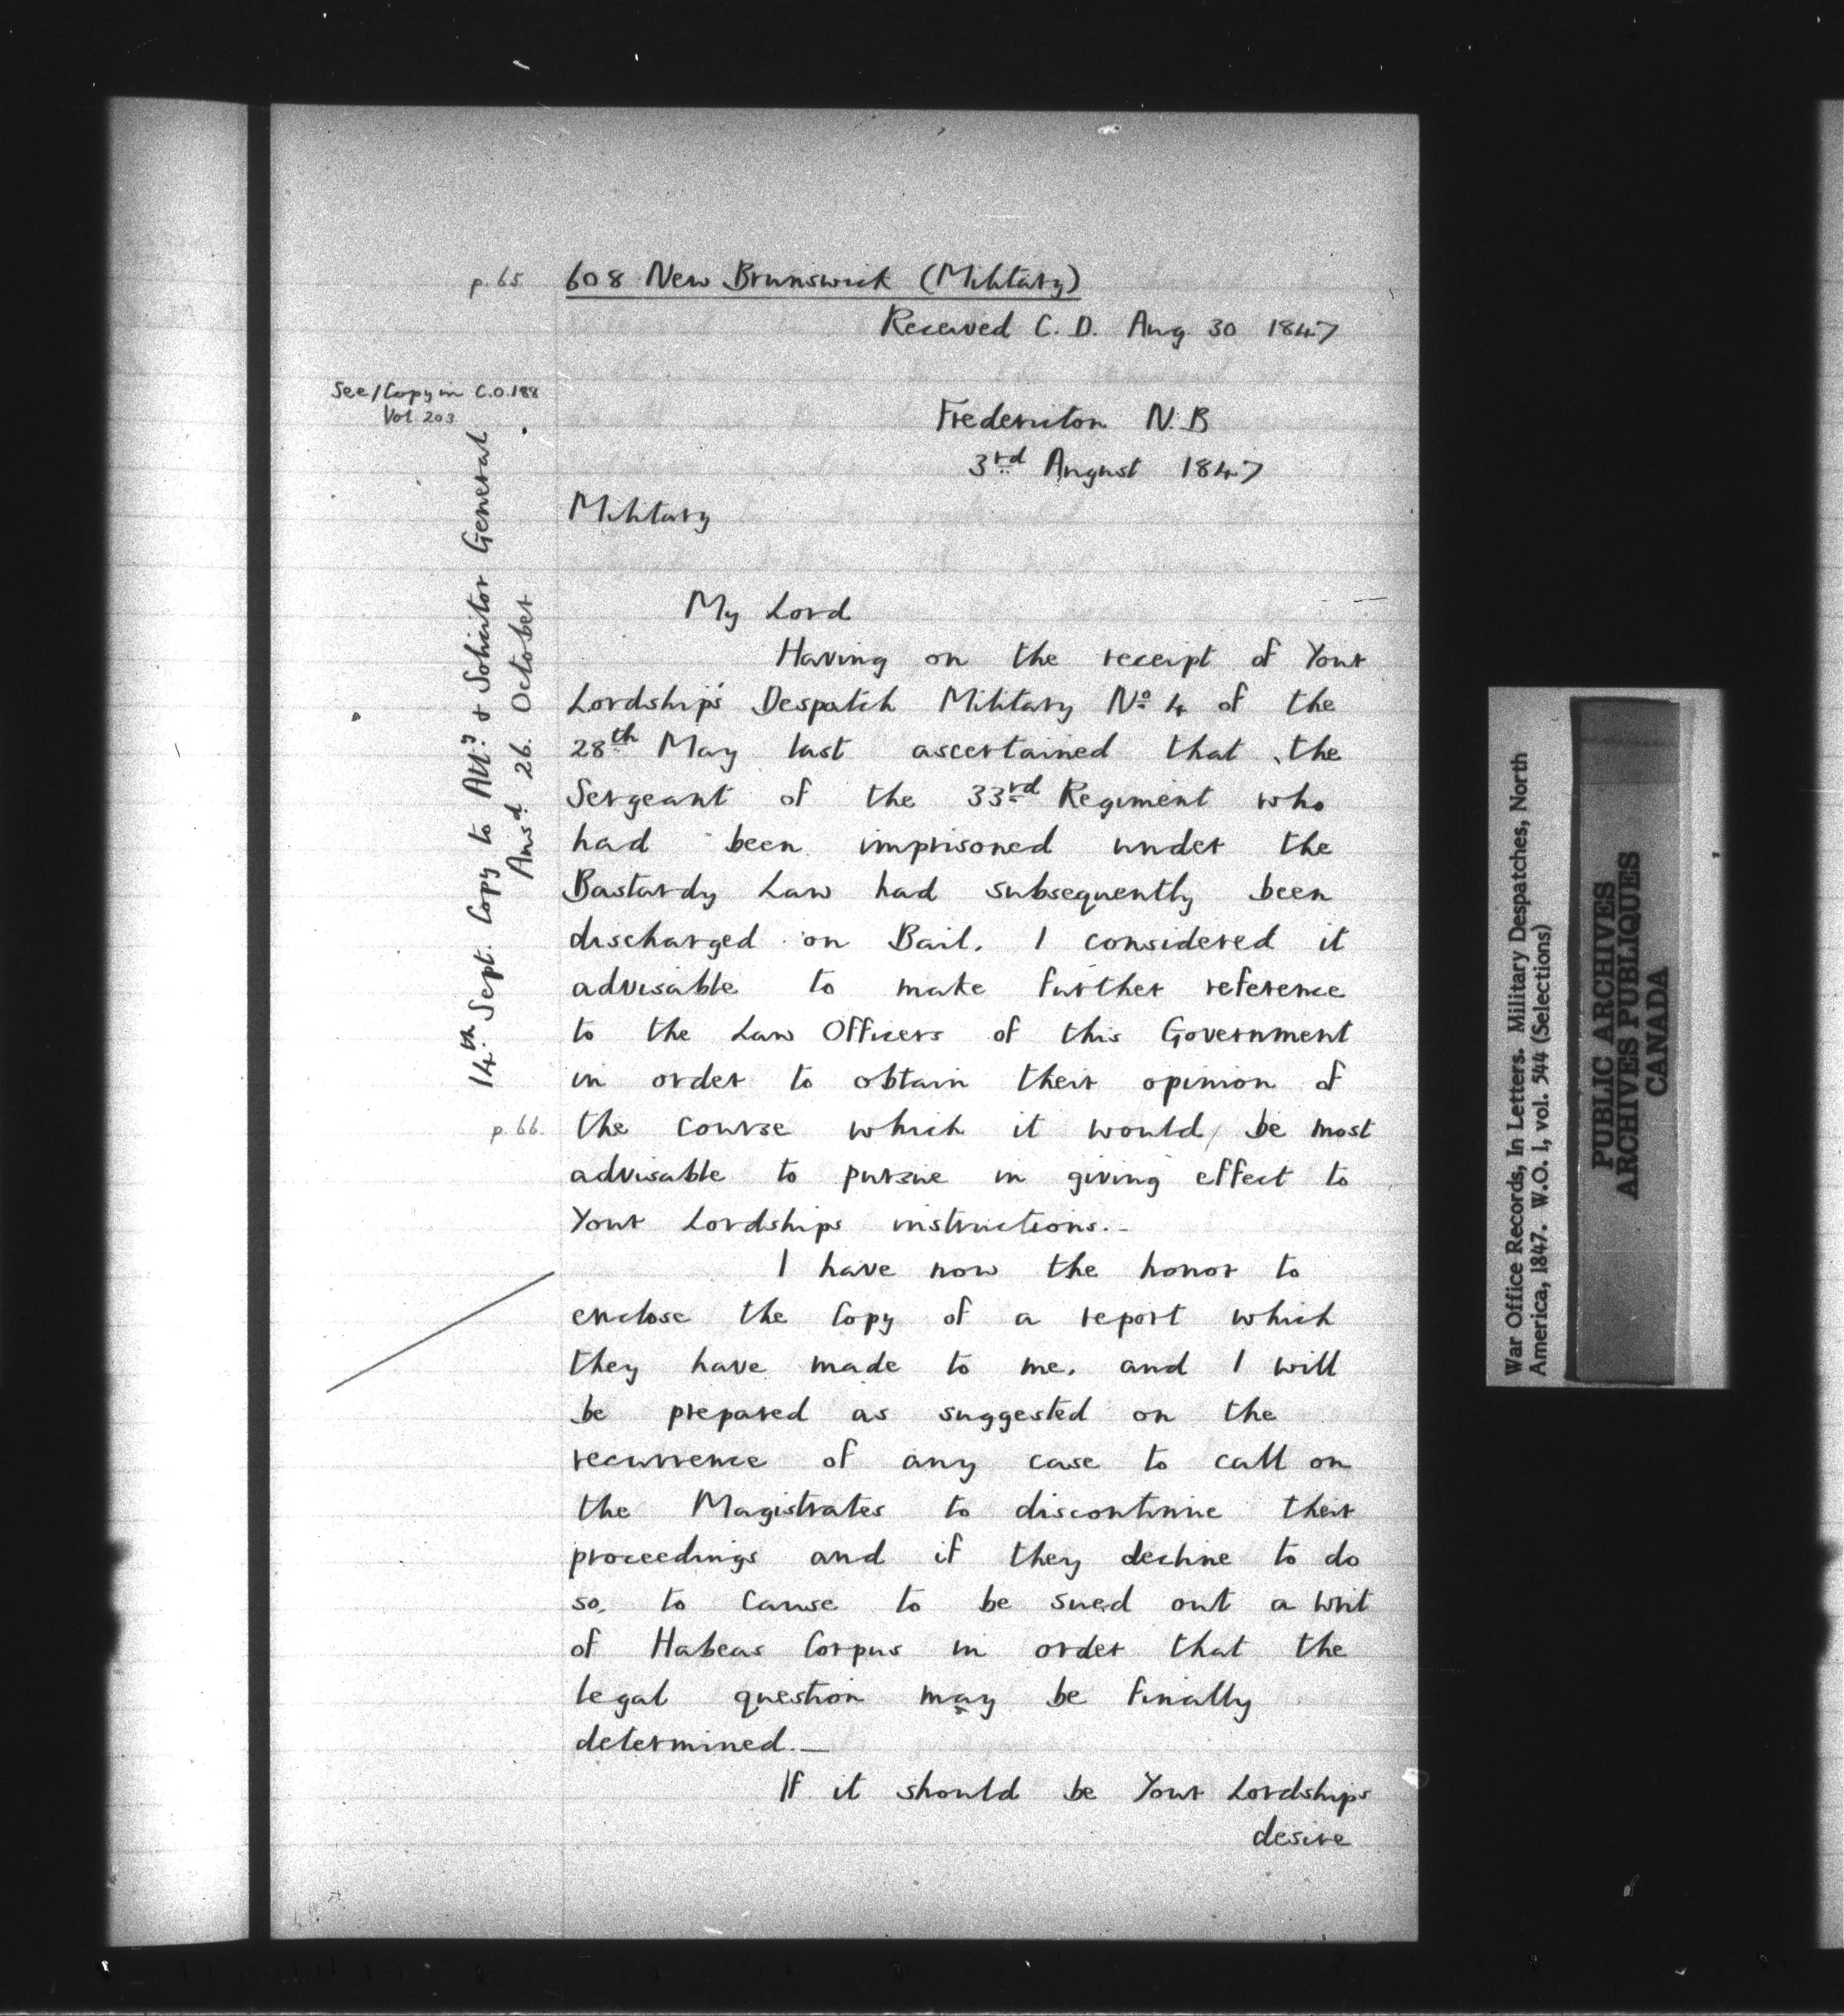 p. 65 608 New Brunswick (Military)
Received C. D. Aug 30 1847
See / Copy in C.O. 188
Vol. 203
Fredericton N.B
3rd August 1847
Military
14th Sept. Copy to Atty & Solicitor General
Ansd. 26. October
My Lord
Having on the receipt of Your
Lordship's Despatch Military No 4 of the
28th May last ascertained that the
Sergeant of the 33rd Regiment who
had been imprisoned under the
Bastardy Law had subsequently been
discharged on Bail. I considered it
advisable to make further reference
to the Law Officers of this Government
in order to obtain their opinion of
p. 66. the course which it would / be most
advisable to pursue in giving effect to
Your Lordships instructions. -
I have now the honor to
enclose the Copy of a report which
they have made to me. and I will
be prepared as suggested on the
recurrence of any case to call on
the Magistrates to discontinue their
proceedings and if they decline to do
so, to cause to be sued out a writ
of Habeas Corpus in order that the
legal question may be finally
determined. —
If it should be Your Lordships
desire
War Office Records, In Letters. Military Despatches, North
America, 1847. W.O. 1, vol. 544 (Selections)
PUBLIC ARCHIVES
ARCHIVES PUBLIQUES
CANADA